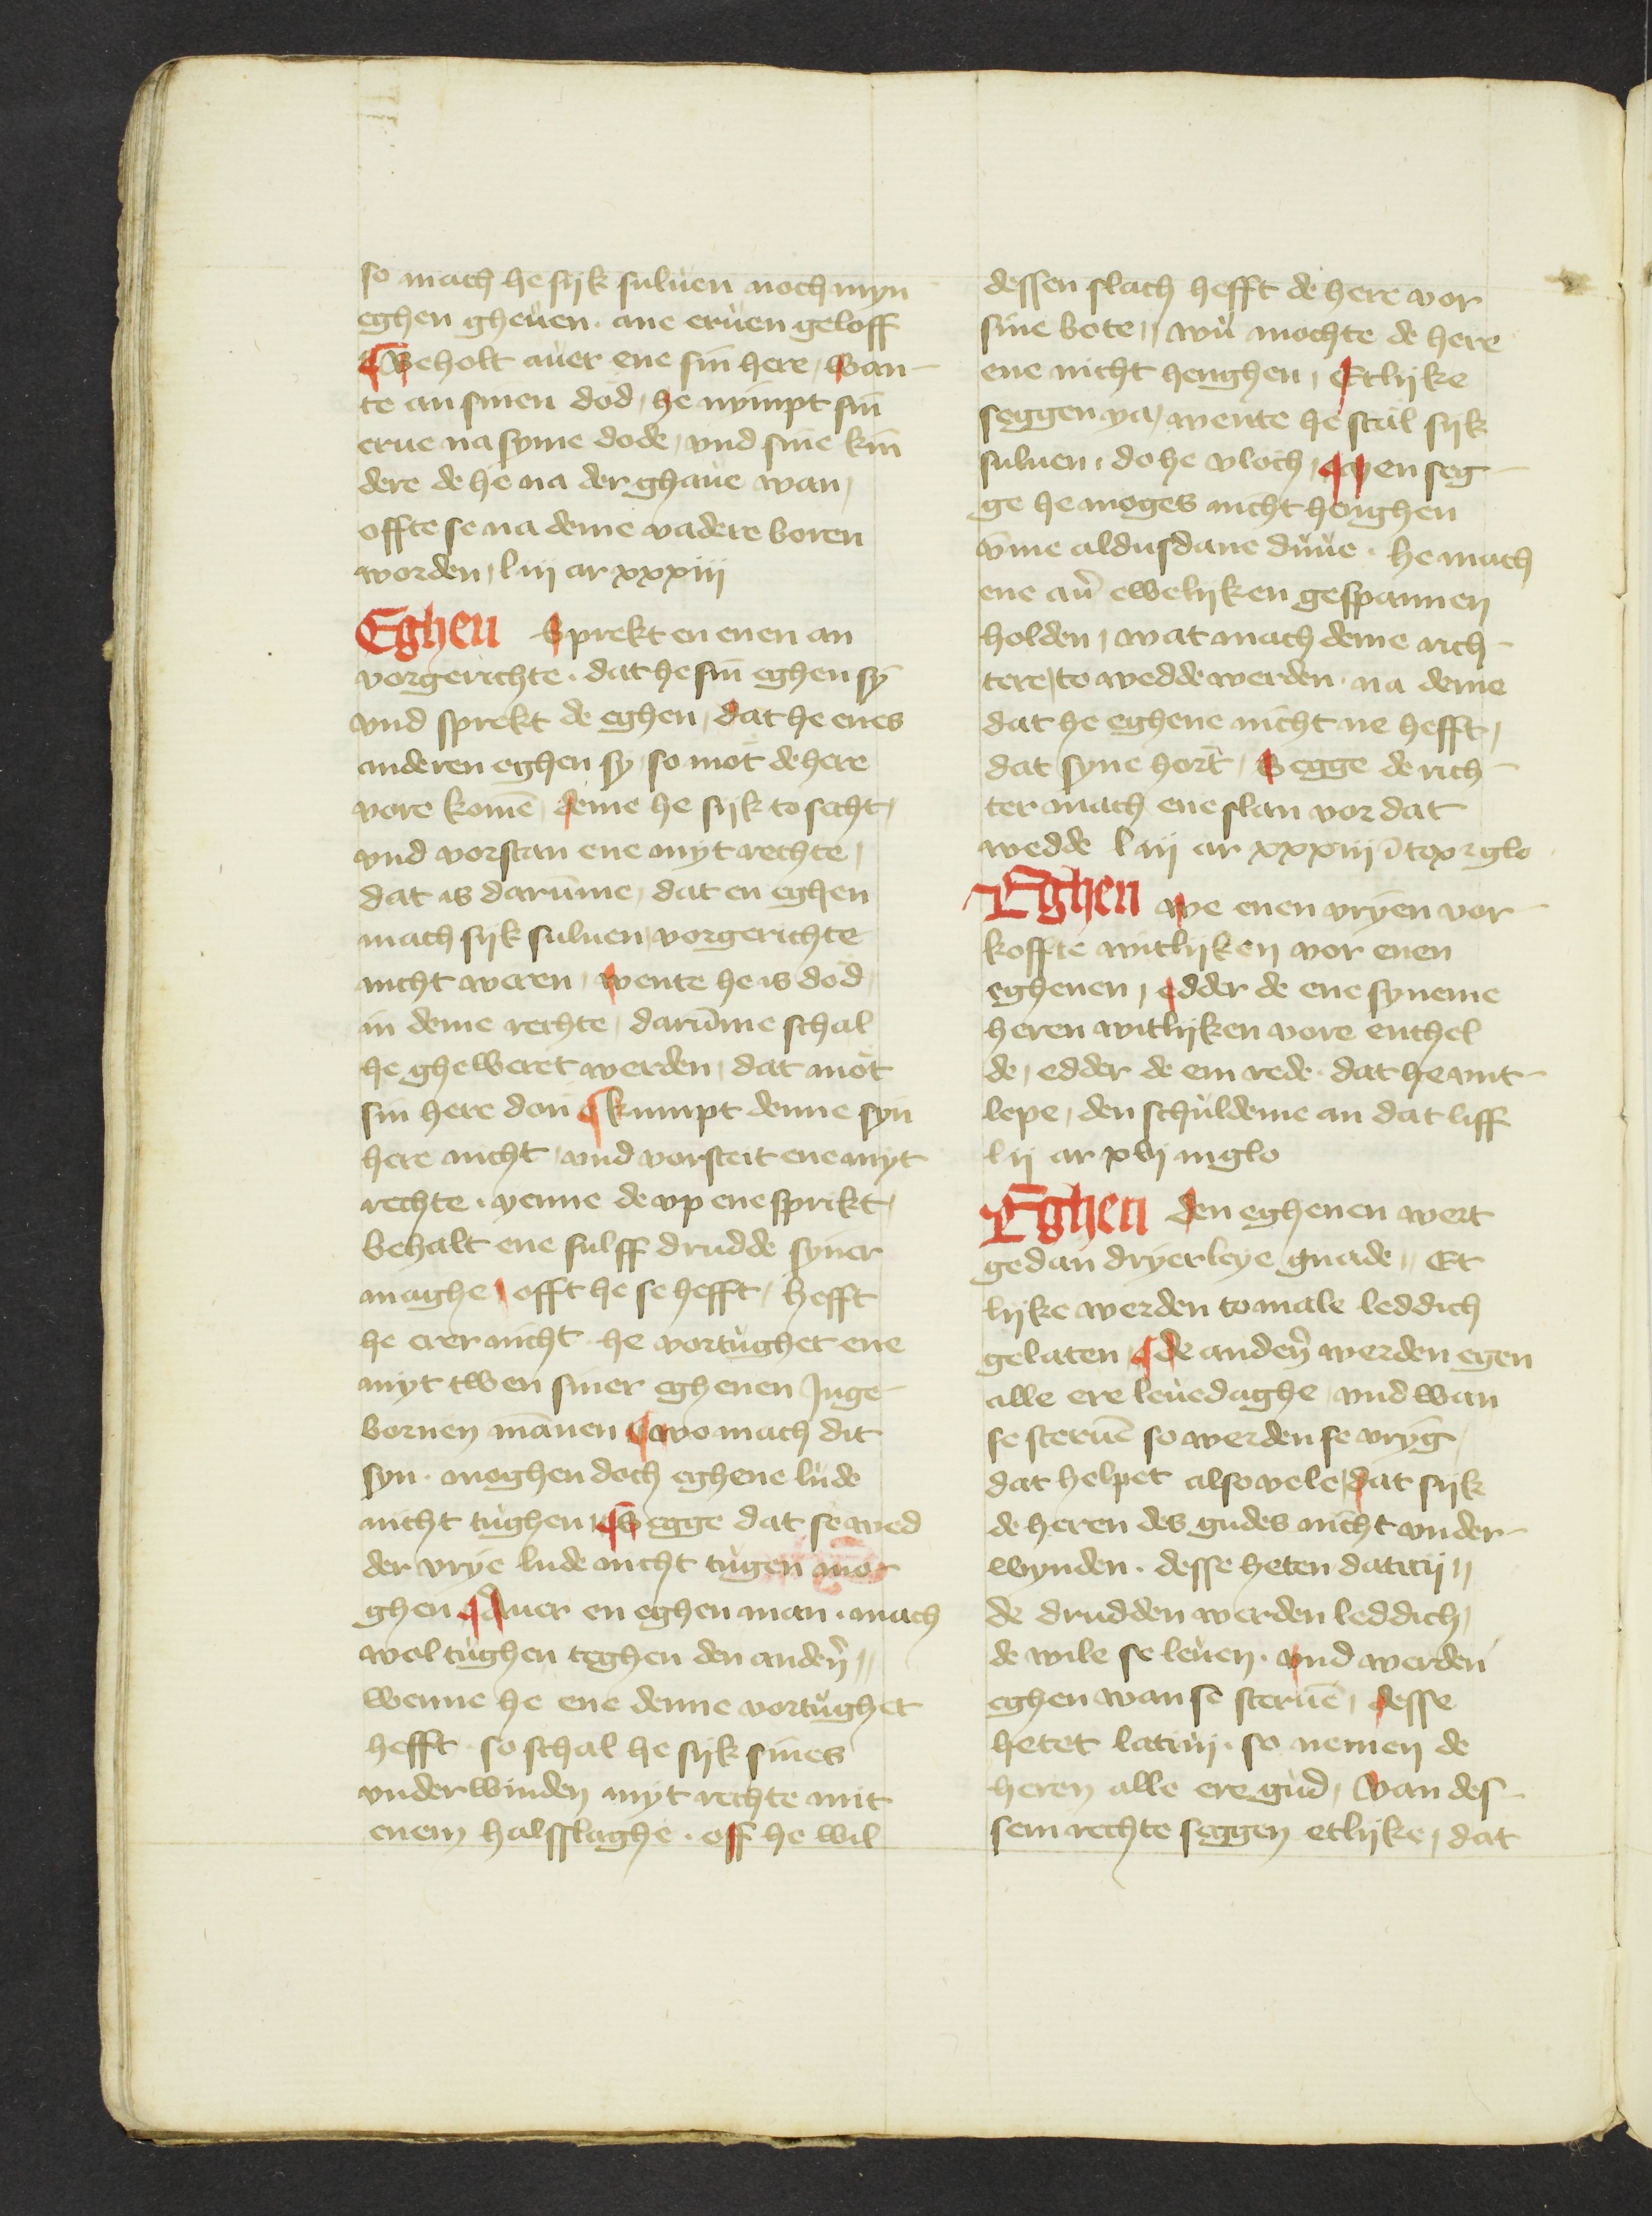 so mach he sijk suluen noch myn
eghen gheuen · ane eruen geloff
¶ Beholt auer ene sin here, wan-
te an sinen dod, he nympt sin
erue na syme dode, vnd sine kin
dere de he na der ghaue wan,
offte se na deme vadere boren
worden, l iij ar xxxiij
Eghen Sprekt en enen an
vorgerichte · dat he sin eghen sy
vnd sprekt de eghen, dat he enes
anderen eghen sy, so mot de here
vore komē, deme he sijk to secht,
vnd vorstan ene myt rechte,
dat is darūme, dat en eghen
mach sijk suluen vorgerichte
nicht weren, wente he is dod,
in deme rechte, darūme schal
he gheweret werden, dat mot
sin here don ¶ kumpt denne syn
here nicht, vnd vorsteit ene myt
rechte · yenne de vp ene sprikt,
behalt ene sulff drudde syner
maghe, offt he se hefft, hefft
he erer nicht · he vortughet ene
myt twen siner eghenen Inge-
bornen mānen ¶ wo mach dit
syn · moghen doch eghene lude
nicht tughen, ¶ Segge dat se wed
der vrye lude nicht tugen mo-
ghen ¶ Auer en eghen man · mach
wol tughen teghen den anderen //
wenne he ene denne vortughet
hefft · so schal he sijk sines
vnderwinden myt rechte mit
enem halsslaghe · off he wil
dessen slach hefft de here vor
sine bote // wu mochte de here
ene nicht henghen, Etlijke
seggen ya, wente he stal sijk
suluen, do he vloch, ¶ yen seg-
ge he moges nicht henghen
vme aldusdane duue · he mach
ene au̓ ewelijken gespannen
holden, wat mach deme rich-
tere, to wedde werden · na deme
dat he eghene nicht ne hefft,
dat syne hort, Segge de rich-
ter mach ene slan vor dat
wedde l iij ar xxxiij ī tex z glo
Eghen we enen vryen vor-
koffte witlijken vor enen
eghenen, edder de ene syneme
heren witlijken vore enthel
de, edder de em rede · dat he vnt-
lepe, den schuldeme an dat liff
l ij ar xvj in glo
Eghen den eghenen wert
gedan dryerleye gnade // Et
lijke werden tomale leddich
gelaten ¶ de andern̄ werden egen
alle ere leuedaghe, vnd wan
se steruē so werden se vryg,
dat helpet also vele, dat sijk
de heren des gudes nicht vnder-
wynden · desse heten datitij //
de drudden werden leddich,
de wile se leuen · vnd werden
eghen wan se steruē, desse
hetet latinj · so nemen de
heren alle ere gud, Van des-
sem rechte seggen etlijke, dat